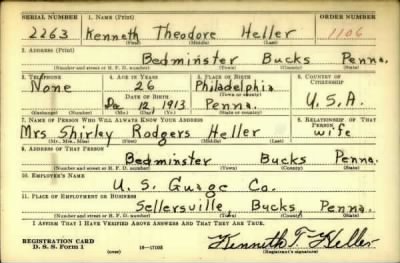 SERIAL NUMBER 1. NAME (Print) ORDER NUMBER
2263 Kenneth Theodore Heller 1106
(First) (Middle) (Last)
2. ADDRESS (Print)
Bedminster Bucks Penna.
(Number and street or R. F. D. number) (Town) (County) (State)
3. TELEPHONE 4. AGE IN YEARS 5. PLACE OF BIRTH 6. COUNTRY OF CITIZENSHIP
None 26 Philadelphia
(Town or county)
DATE OF BIRTH
De 12, 1913 Penna. U.S.A.
(Exchange) (Number) (Mo.) (Day) (Yr.) (State or country)
7. NAME OF PERSON WHO WILL ALWAYS KNOW YOUR ADDRESS 8. RELATIONSHIP OF THAT PERSON
Mrs Shirley Rodgers Heller wife
(Mr., Mrs., Miss) (First) (Middle) (Last)
9. ADDRESS OF THAT PERSON
Bedminster Bucks Penna.
(Number and street or R. F. D. number) (Town) (County) (State)
10. EMPLOYER'S NAME
U. S. Guage Co.
11. PLACE OF EMPLOYMENT OR BUSINESS
Sellersville Bucks, Penna.
(Number and street or R. F. D. number) (Town) (County) (State)
I AFFIRM THAT I HAVE VERIFIED ABOVE ANSWERS AND THAT THEY ARE TRUE.
REGISTRATION CARD
D. S. S. Form 1 (over) 16—17105 Kenneth T. Heller
(Registrant's signature)